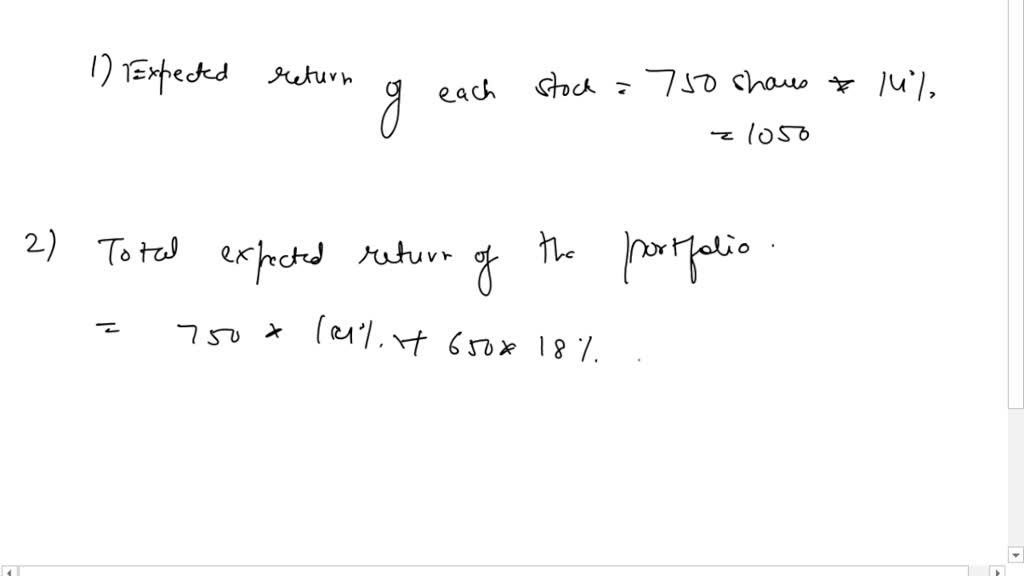 1) Expected return of each stock = 750 shares * 14%.
= 1050
2) Total expected return of the portfolio.
= 750 * 14%. + 650 * 18%.